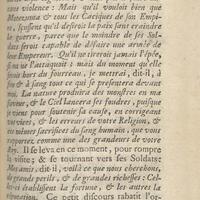 sans violence : Mais qu'il vouloit bien que
Motezuma & tous les Caciques de son Empi-
re, sçussent qu'il desiroit la paix sans craindre
la guerre, parce que le moindre de ses Sol-
dats seroit capable de défaire une armée de
leur Empereur. Qu'il ne tireroit jamais l'épée,
si on ne l'attaquoit : mais du moment qu'elle
sera hors du fourreau, je mettrai, dit-il, à
feu & à sang tout ce qui se presentera devant
moi. La nature produira des monstres en ma
faveur, & le Ciel lancera ses foudres, puisque
je viens pour soutenir sa cause, en corrigeant
vos vices, & les erreurs de votre Religion, &
ces mêmes sacrifices du sang humain, que vous
raportez, comme une des grandeurs de votre
Roy. Il se leva en ce moment, pour rompre
la visite ; & se tournant vers ses Soldats:
Mes amis, dit-il, voilà ce que nous cherchions,
de grands perils, & de grandes richesses : Cel-
les-ci établissent la fortune, & les autres la
réputation. Ce petit discours rabatit l'or-